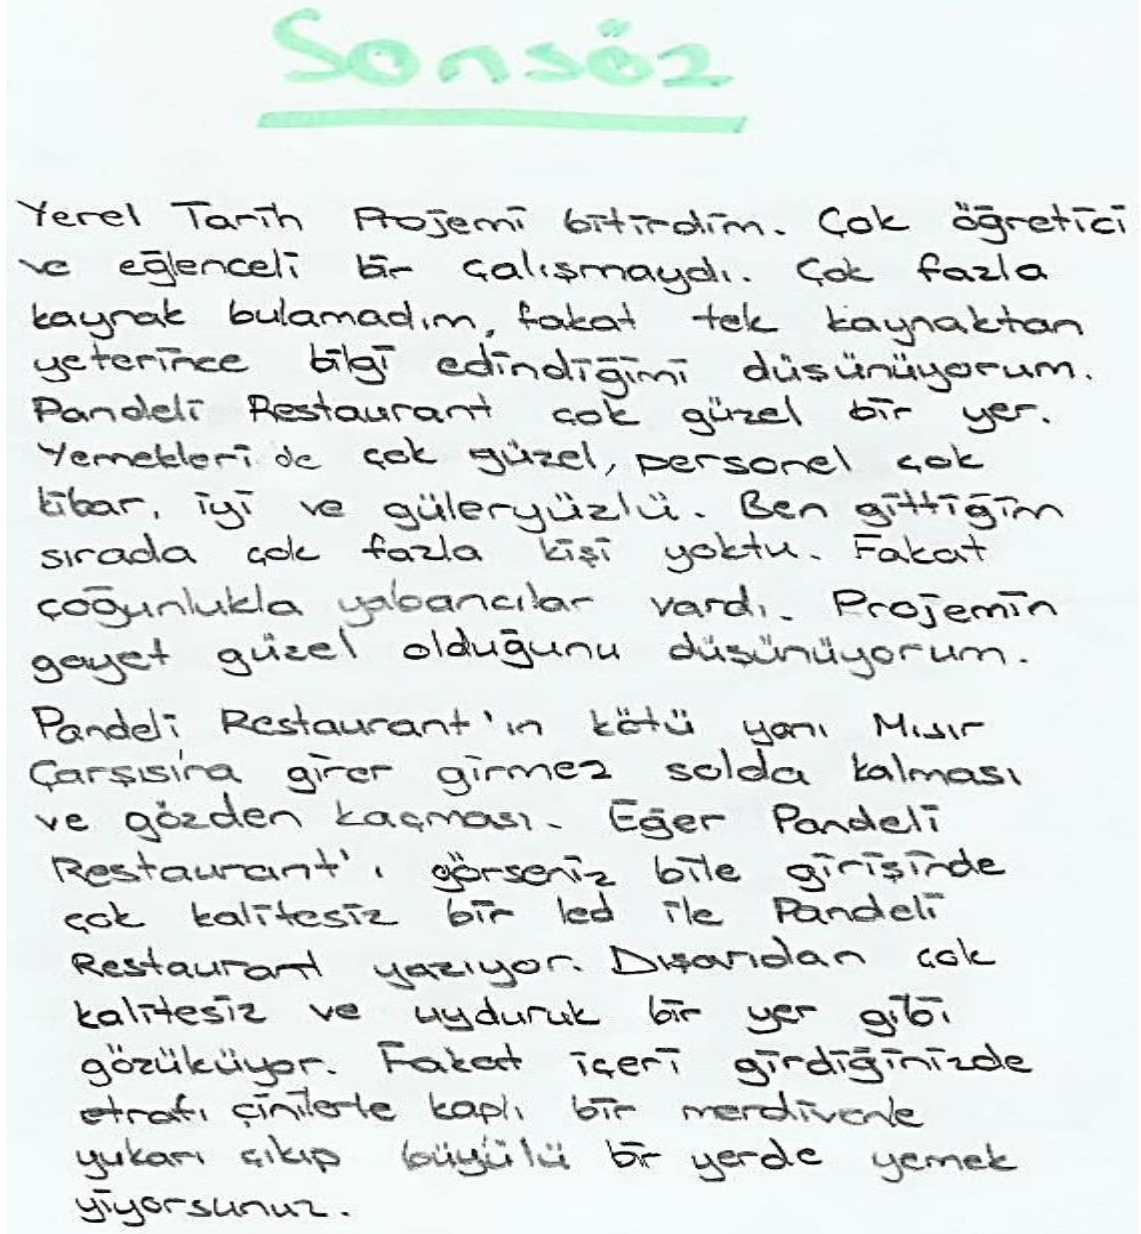 Sonsöz
Yerel Tarih Projemi bitirdim. Çok öğretici
ve eğlenceli bir çalışmaydı. Çok fazla
kaynak bulamadım, fakat tek kaynaktan
yeterince bilgi edindiğimi düşünüyorum.
Pandeli Restaurant çok güzel bir yer.
Yemekleri de çok güzel, personel çok
kibar, iyi ve güleryüzlü. Ben gittiğim
sırada çok fazla kişi yoktu. Fakat
çoğunlukla yabancılar vardı. Projemin
gayet güzel olduğunu düşünüyorum.
Pandeli Restaurant'ın kötü yanı Mısır
Çarşısına girer girmez solda kalması
ve gözden kaçması. Eğer Pandeli
Restaurant'ı görseniz bile girişinde
çok kalitesiz bir led ile Pandeli
Restaurant yazıyor. Dışarıdan çok
kalitesiz ve uyduruk bir yer gibi
gözüküyor. Fakat içeri girdiğinizde
etrafı çinilerle kaplı bir merdivenle
yukarı çıkıp büyülü bir yerde yemek
yiyorsunuz.